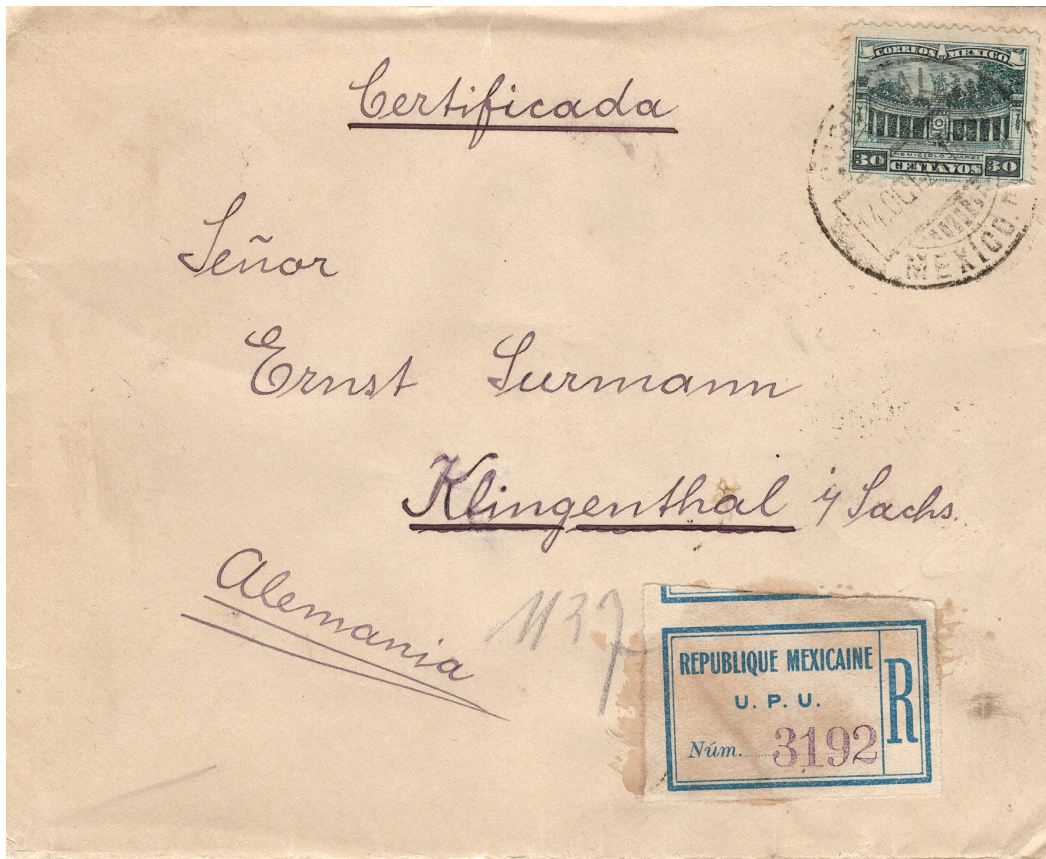 Certificada
CORREOS MEXICO
HEMICICLO JUAREZ
30 CENTAVOS 30
14.OCT
MEXICO.D
Señor
Ernst Surmann
Klingenthal i/Sachs.
Alemania
1137
REPUBLIQUE MEXICAINE
U. P. U.
Núm. 3192
R